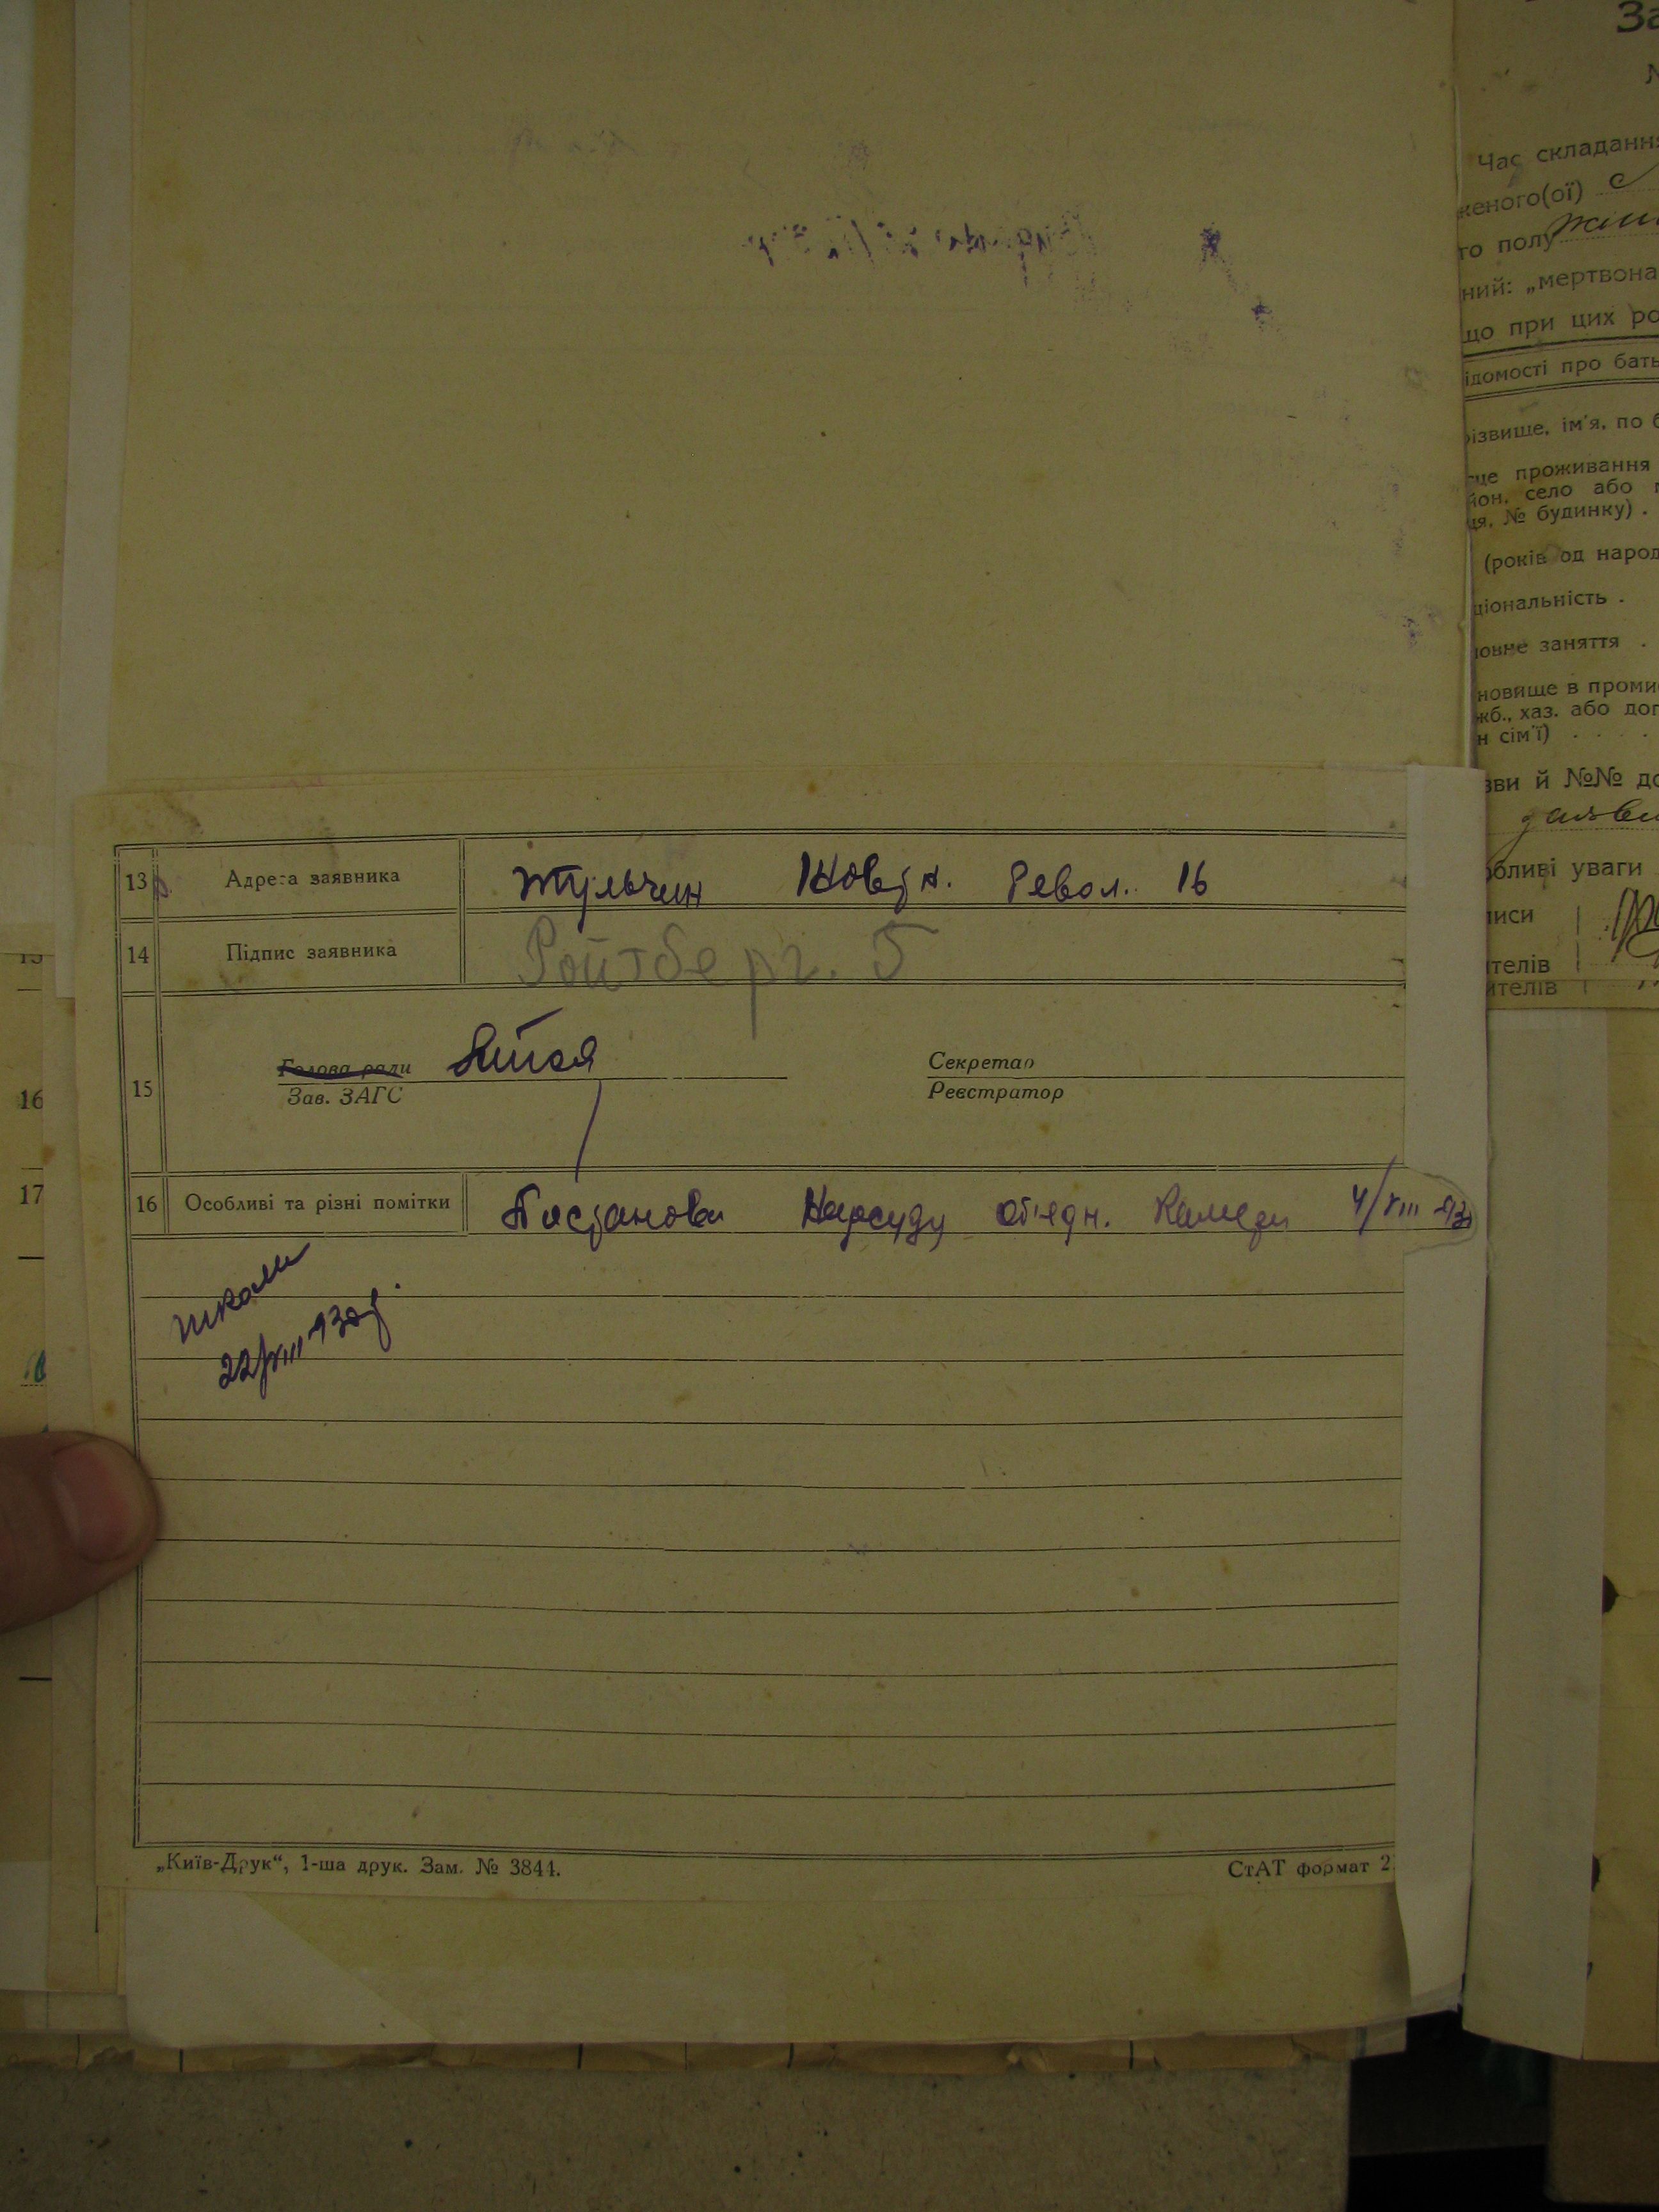 13 Адреса заявника Тульчин Жовтн. Револ. 16
14 Підпис заявника Ройтберг. Б
15 Голова ради
Зав. ЗАГС
Секретар
Реєстратор
16 Особливі та різні помітки Постанова Нарсуду об'єдн. Камери 4/VIII
школи
22/VIII
„Київ-Друк“, 1-ша друк. Зам. № 3844.
СтАТ формат 2
За
Час складання
женого(ої) с
го полу
ний: „мертвона
що при цих ро
ідомості про бать
різвище, ім'я, по б
сце проживання
йон, село або м
ця, № будинку) .
(років од народ
ціональність .
ловне заняття .
новище в проми
жб., хаз. або доп
н сім'ї) . . . .
зви й №№ до
заяви
обливі уваги
писи
ителів
ителів
16
17